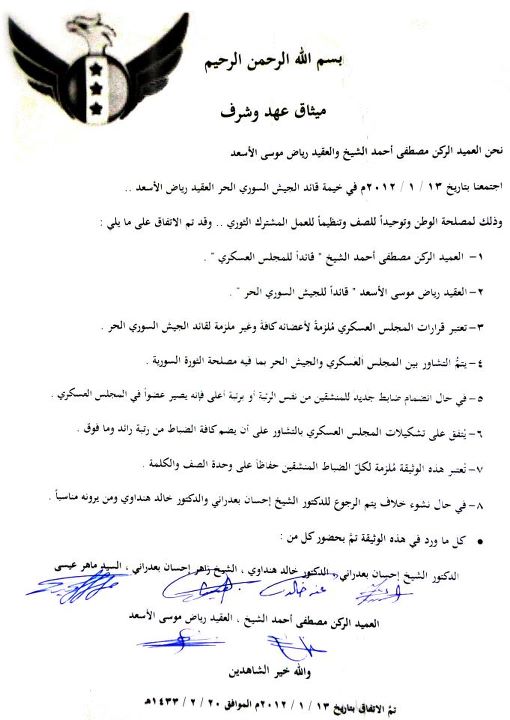 بسم الله الرحمن الرحيم
ميثاق عهد وشرف
نحن العميد الركن مصطفى أحمد الشيخ والعقيد رياض موسى الأسعد
اجتمعنا بتاريخ ١٣ / ١ / ٢٠١٢م في خيمة قائد الجيش السوري الحر العقيد رياض الأسعد ..
وذلك لمصلحة الوطن وتوحيداً للصف وتنظيماً للعمل المشترك الثوري .. وقد تم الاتفاق على ما يلي :
١- العميد الركن مصطفى أحمد الشيخ " قائداً للمجلس العسكري " .
٢- العقيد رياض موسى الأسعد " قائداً للجيش السوري الحر " .
٣- تعتبر قرارات المجلس العسكري مُلزمةً لأعضائه كافة وغير ملزمة لقائد الجيش السوري الحر .
٤- يتمُّ التشاور بين المجلس العسكري والجيش الحر بما فيه مصلحة الثورة السورية .
٥- في حال انضمام ضابط جديد للمنشقين من نفس الرتبة أو برتبة أعلى فإنه يصير عضواً في المجلس العسكري .
٦- يُتفق على تشكيلات المجلس العسكري بالتشاور على أن يضم كافة الضباط من رتبة رائد وما فوق .
٧- تُعتبر هذه الوثيقة مُلزمة لكلّ الضباط المنشقين حفاظاً على وحدة الصف والكلمة .
٨- في حال نشوء خلاف يتم الرجوع للدكتور الشيخ إحسان بعدراني والدكتور خالد هنداوي ومن يرونه مناسباً .
• كل ما ورد في هذه الوثيقة تمّ بحضور كل من :
الدكتور الشيخ إحسان بعدراني ، الدكتور خالد هنداوي ، الشيخ زاهر إحسان بعدراني ، السيد ماهر عيسى
العميد الركن مصطفى أحمد الشيخ ، العقيد رياض موسى الأسعد
والله خير الشاهدين
تمّ الاتفاق بتاريخ ١٣ / ١ / ٢٠١٢م الموافق ٢٠ / ٢ / ١٤٣٣هـ